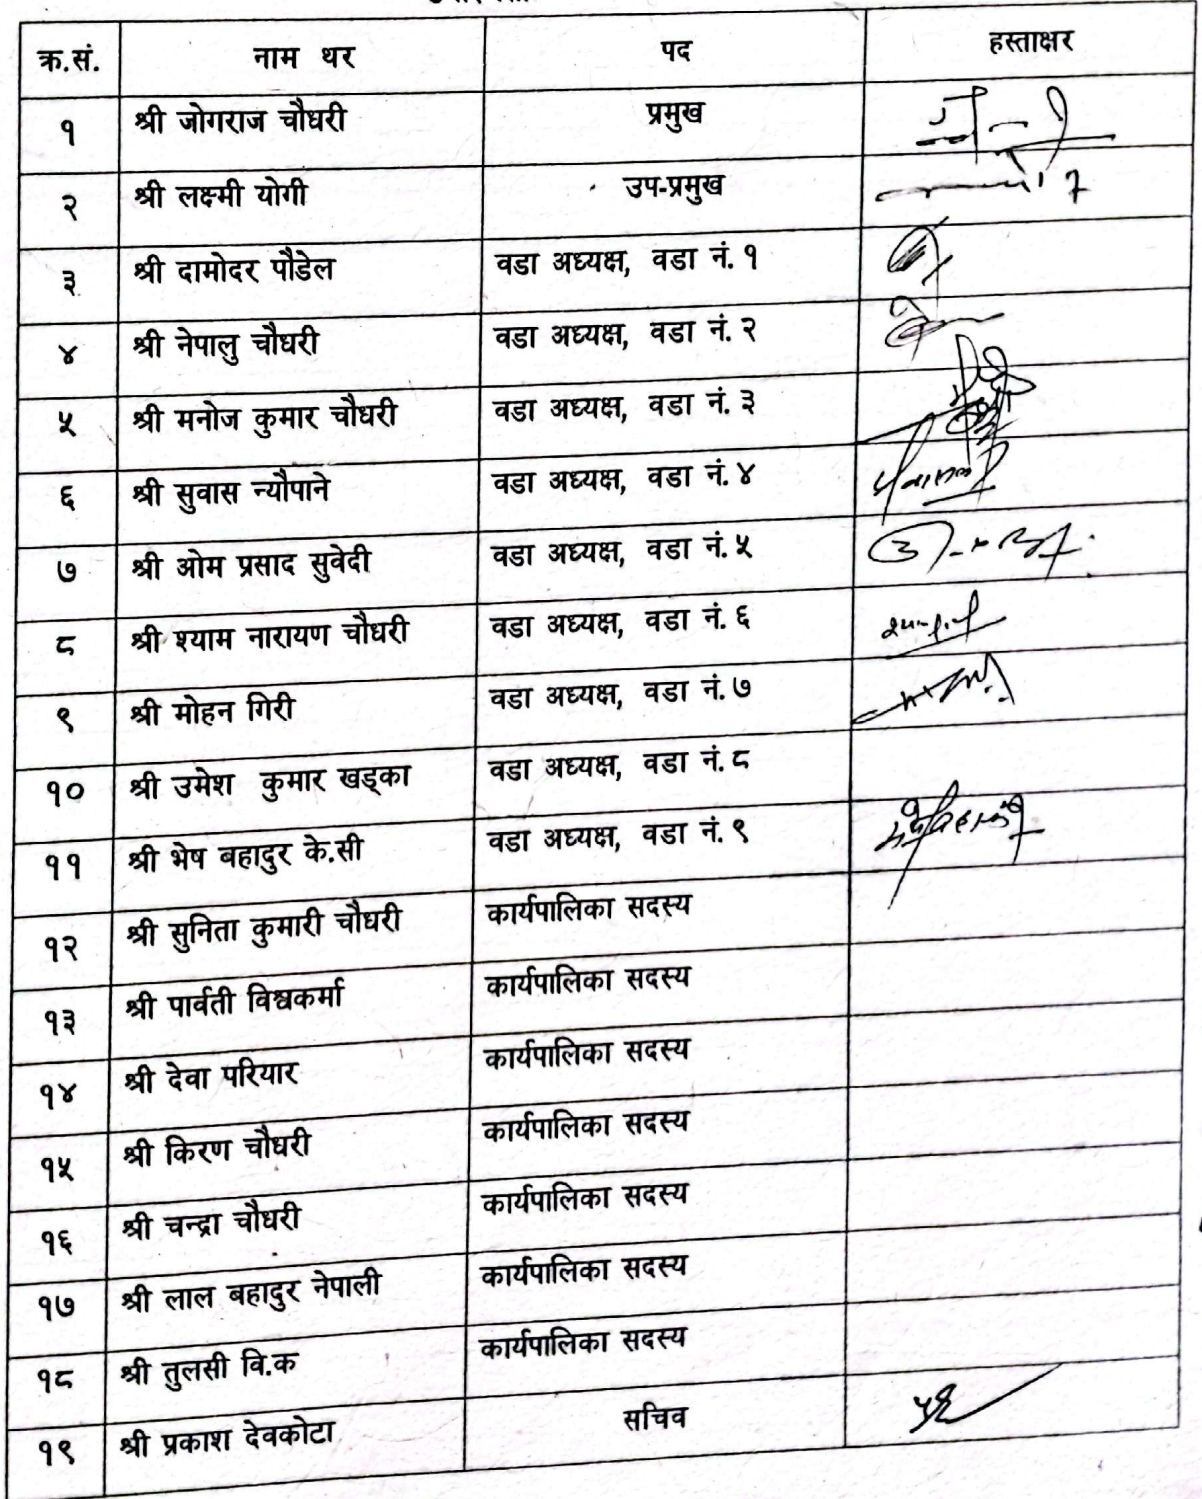 क्र.सं. नाम थर पद हस्ताक्षर
१ श्री जोगराज चौधरी प्रमुख
२ श्री लक्ष्मी योगी उप-प्रमुख
३ श्री दामोदर पौडेल वडा अध्यक्ष, वडा नं. १
४ श्री नेपालु चौधरी वडा अध्यक्ष, वडा नं. २
५ श्री मनोज कुमार चौधरी वडा अध्यक्ष, वडा नं. ३
६ श्री सुवास न्यौपाने वडा अध्यक्ष, वडा नं. ४
७ श्री ओम प्रसाद सुवेदी वडा अध्यक्ष, वडा नं. ५
८ श्री श्याम नारायण चौधरी वडा अध्यक्ष, वडा नं. ६
९ श्री मोहन गिरी वडा अध्यक्ष, वडा नं. ७
१० श्री उमेश कुमार खड्का वडा अध्यक्ष, वडा नं. ८
११ श्री भेष बहादुर के.सी वडा अध्यक्ष, वडा नं. ९
१२ श्री सुनिता कुमारी चौधरी कार्यपालिका सदस्य
१३ श्री पार्वती विश्वकर्मा कार्यपालिका सदस्य
१४ श्री देवा परियार कार्यपालिका सदस्य
१५ श्री किरण चौधरी कार्यपालिका सदस्य
१६ श्री चन्द्रा चौधरी कार्यपालिका सदस्य
१७ श्री लाल बहादुर नेपाली कार्यपालिका सदस्य
१८ श्री तुलसी वि.क कार्यपालिका सदस्य
१९ श्री प्रकाश देवकोटा सचिव